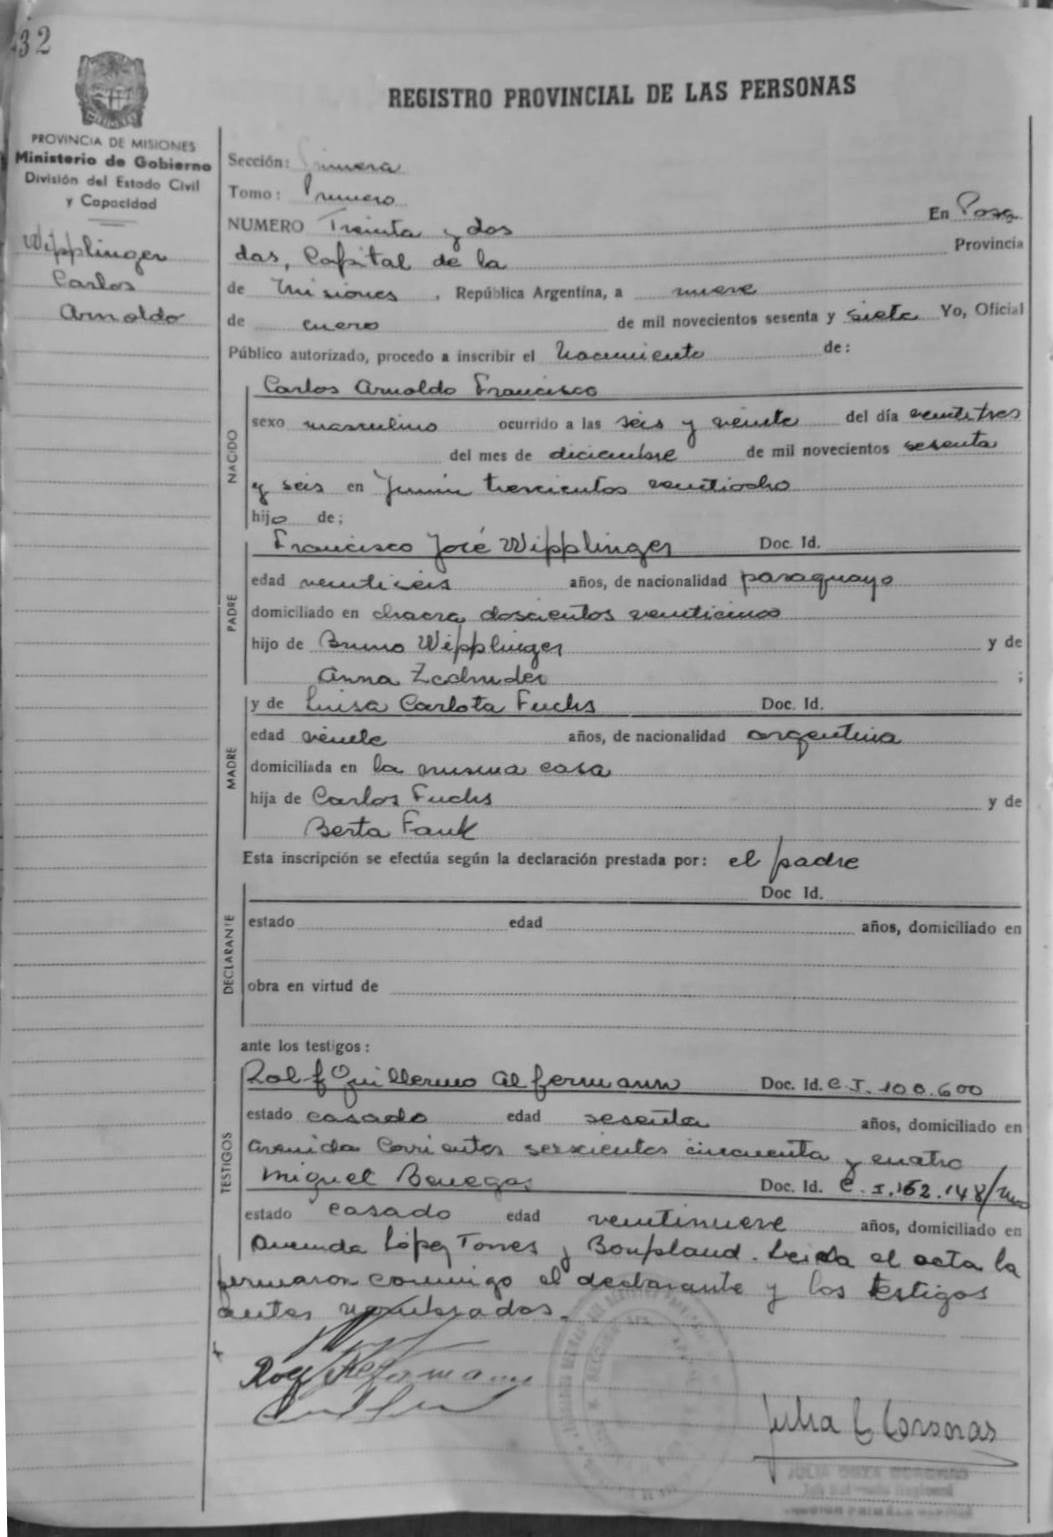 32
REGISTRO PROVINCIAL DE LAS PERSONAS
PROVINCIA DE MISIONES
Ministerio de Gobierno
División del Estado Civil
y Capacidad
Wipplinger
Carlos
Arnoldo
Sección: Primera
Tomo: Primero
NUMERO Treinta y dos En Posa
das, Capital de la Provincia
de Misiones, República Argentina, a nueve
de enero de mil novecientos sesenta y siete Yo, Oficial
Público autorizado, procedo a inscribir el Nacimiento de:
NACIDO
Carlos Arnoldo Francisco
sexo masculino ocurrido a las seis y veinte del día veintitres
del mes de diciembre de mil novecientos sesenta
y seis en Junín trescientos veintiocho
hijo de;
PADRE
Francisco José Wipplinger Doc. Id.
edad veintiseis años, de nacionalidad paraguayo
domiciliado en chacra doscientos veinticinco
hijo de Bruno Wipplinger y de
Anna ;
MADRE
y de Luisa Carlota Fuchs Doc. Id.
edad veinte años, de nacionalidad argentina
domiciliada en la misma casa
hija de Carlos Fuchs y de
Berta Fauk
Esta inscripción se efectúa según la declaración prestada por: el padre
DECLARANTE
Doc. Id.
estado edad años, domiciliado en
obra en virtud de
ante los testigos:
TESTIGOS
Rolf Guillermo Alfermann Doc. Id. C.I. 100.600
estado casado edad sesenta años, domiciliado en
Avenida Corrientes seiscientos cincuenta y cuatro
Miguel Benegas Doc. Id. C.I. 152.148/
estado casado edad veintinueve años, domiciliado en
Avenida López Torres y Bonpland. Leida el acta la
firmaron conmigo el declarante y los testigos
antes nombrados.